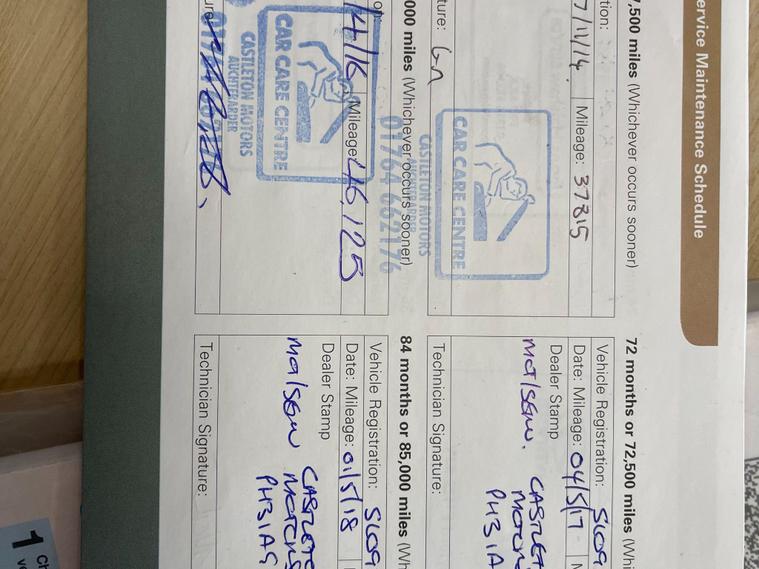 ervice Maintenance Schedule
,500 miles (Whichever occurs sooner)
tion:
7/11/14. Mileage: 37815
CAR CARE CENTRE
CASTLETON MOTORS
AUCHTERARDER
01764 662176
ture: Gn
000 miles (Whichever occurs sooner)
/4/16 Mileage: 46,125
CAR CARE CENTRE
CASTLETON MOTORS
AUCHTERARDER
72 months or 72,500 miles (Whi
Vehicle Registration: SL09
Date: Mileage: 04/5/17
Dealer Stamp
CASTLET
MOTOR
PH3 1A
Technician Signature:
84 months or 85,000 miles (Wh
Vehicle Registration: SL09
Date: Mileage: 01/5/18
Dealer Stamp
CASTLETO
MOTORS
PH3 1AS
Technician Signature:
1